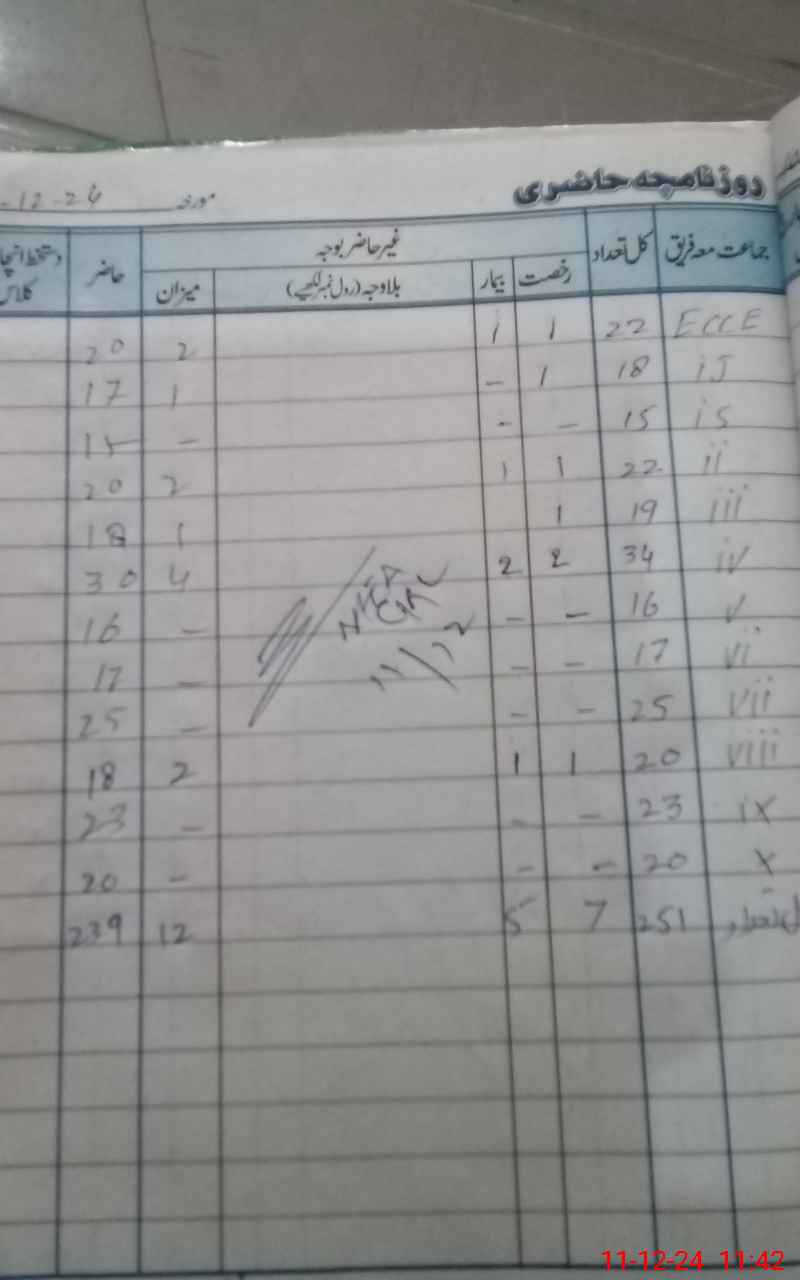 روزنامچہ حاضری
مورخہ -12-24
جماعت معہ فریق کل تعداد غیر حاضر بوجہ حاضر
رخصت بیمار بلاوجہ (رول نمبر لکھیے) میزان
ECCE 22 1 1 2 20
iJ 18 1 - 1 17
is 15 - - - 15
ii 22 1 1 2 20
iii 19 1 1 18
iv 34 2 2 4 30
v 16 - - - 16
vi 17 - - - 17
vii 25 - - - 25
viii 20 1 1 2 18
ix 23 - - - 23
x 20 - - - 20
تعداد 251 7 5 12 239
11/12
11-12-24 11:42